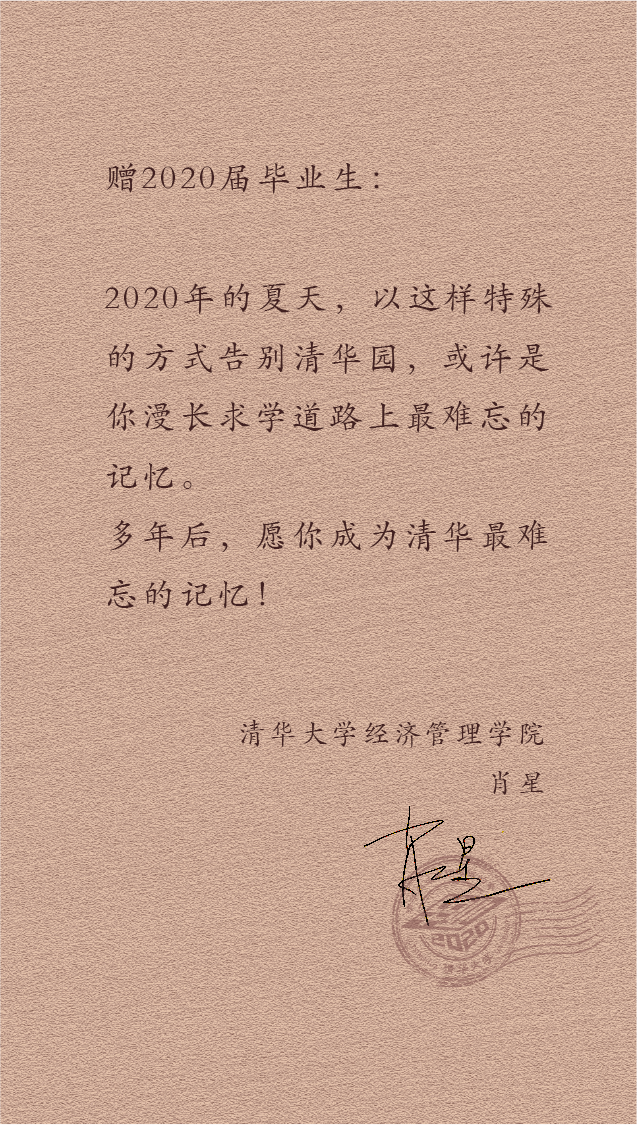 赠2020届毕业生：
2020年的夏天，以这样特殊
的方式告别清华园，或许是
你漫长求学道路上最难忘的
记忆。
多年后，愿你成为清华最难
忘的记忆！
清华大学经济管理学院
肖星
肖星
2020
清华大学